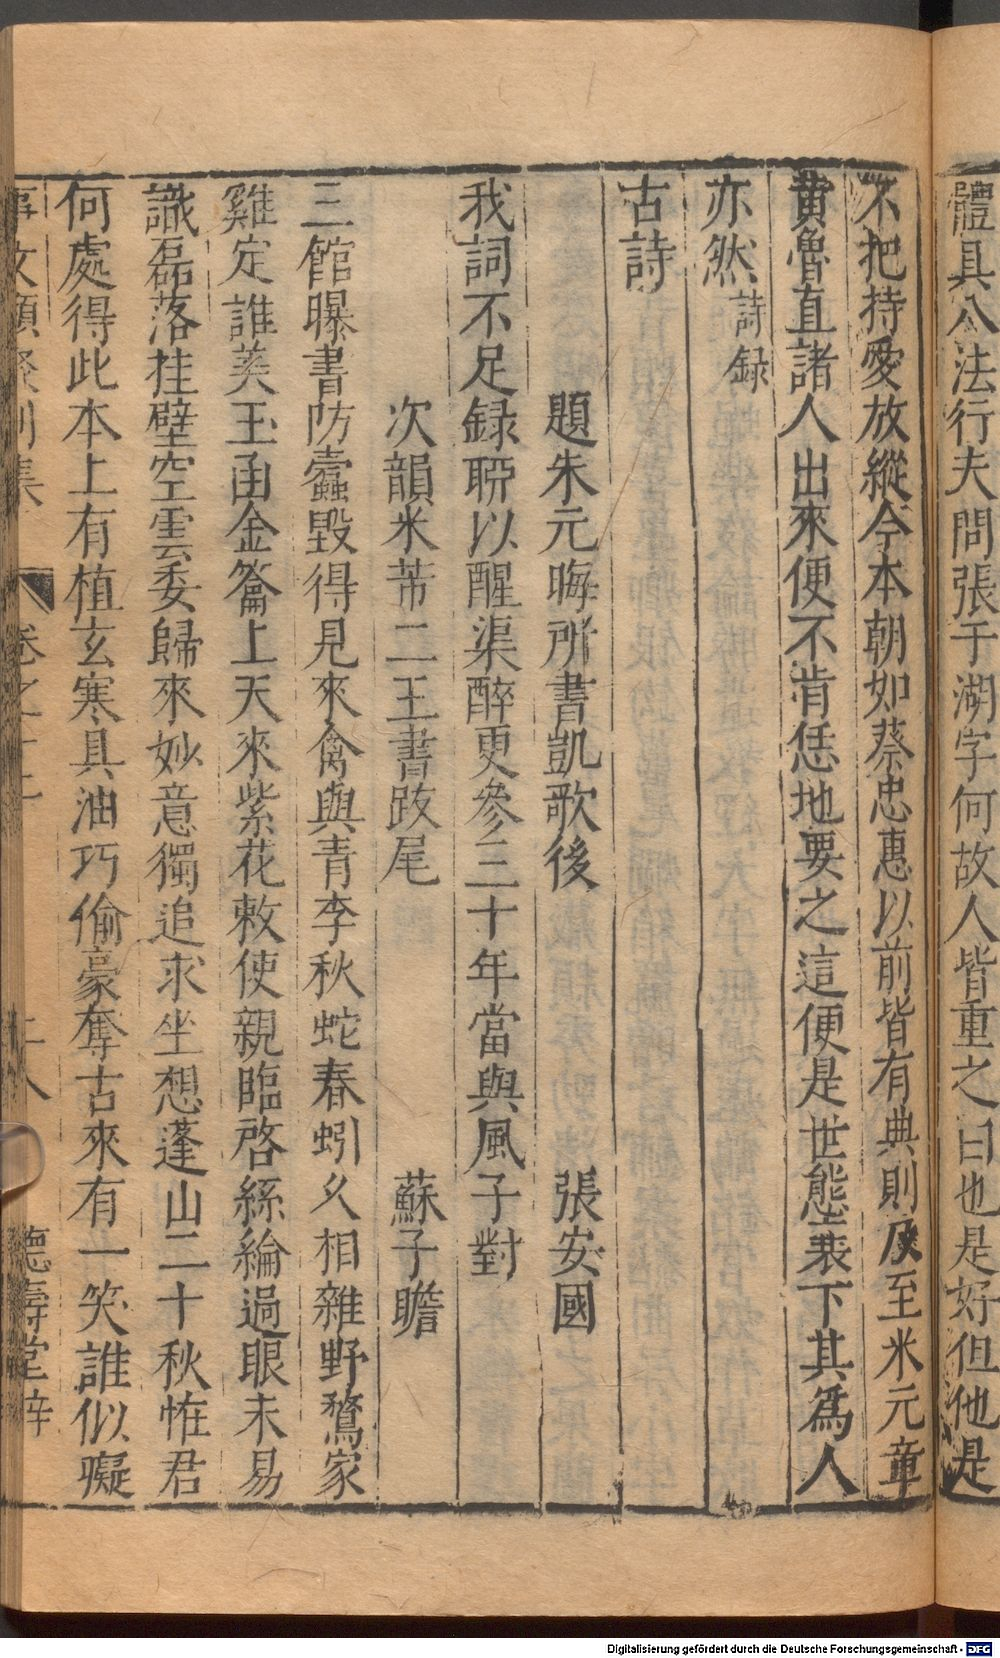 體具八法行夫問張于湖字何故人皆重之曰也是好但他是
不把持愛放縱今本朝如蔡忠惠以前皆有典則及至米元章
黄魯直諸人出來便不肯恁地要之這便是世態衰下其爲人
亦然詩録
古詩
題朱元晦所書凱歌後 張安國
我詞不足録聊以醒渠醉更參三十年當與風子對
次韻米芾二王書跋尾 蘇子瞻
三館曝書防蠹毁得見來禽與青李秋蛇春蚓久相雜野鶩家
雞定誰美玉函金籥上天來紫花敕使親臨啓絲綸過眼未易
識磊落挂壁空雲委歸來妙意獨追求坐想蓬山二十秋惟君
何處得此本上有植玄寒具油巧偷豪奪古來有一笑誰似癡
事文類聚别集 卷之十二 十八 德壽堂梓
Digitalisierung gefördert durch die Deutsche Forschungsgemeinschaft - DFG